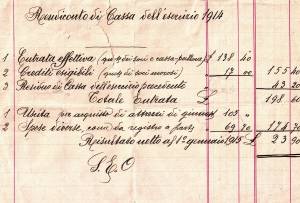 Rendiconto di Cassa dell'esercizio 1914
1 Entrata effettiva (quote di soci e cassa-pallone) £ 138 40
2 Crediti esigibili (quote di soci morosi) 17 00 155 40
3 Residuo di Cassa dell'esercizio precedente 43 20
Totale Entrata £ 198 60
1 Uscita per acquisto di attrezzi di ginnast. 105 "
2 Spese diverse, come da registro a parte 69 70 174 70
Risultato netto al 1° gennaio 1915 £ 23 90
S. E. O